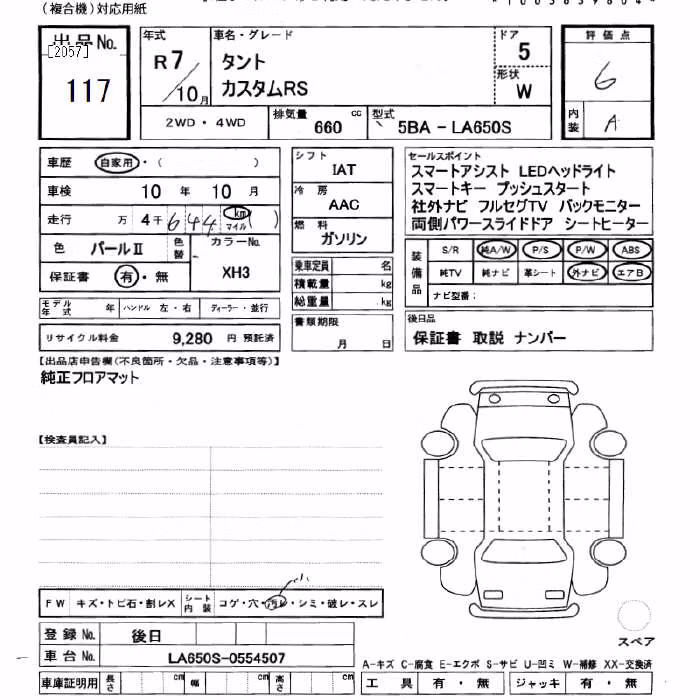 (複合機)対応用紙
出品No.
[2057]
117
年式
R 7 / 10 月
車名・グレード
タント
カスタムRS
ドア
5
形状
W
評価点
6
内装
A
2WD・4WD
排気量
660 cc
型式
5BA - LA650S
車歴 自家用・( )
車検 10 年 10 月
走行 万 4千 6 4 4 km マイル ( )
色 パールⅡ 色替 カラーNo. XH3
保証書 有・無
モデル年式 年 ハンドル 左・右 ディーラー・並行
リサイクル料金 9,280 円 預託済
シフト
IAT
冷房
AAC
燃料
ガソリン
乗車定員 名
積載量 kg
総重量 kg
書類期限
月 日
セールスポイント
スマートアシスト LEDヘッドライト
スマートキー プッシュスタート
社外ナビ フルセグTV バックモニター
両側パワースライドドア シートヒーター
装備品
S/R 純A/W P/S P/W ABS
純TV 純ナビ 革シート 外ナビ エアB
ナビ型番:
後日品
保証書 取説 ナンバー
【出品店申告欄(不良箇所・欠品・注意事項等)】
純正フロアマット
【検査員記入】
FW キズ・トビ石・割レX シート内装 コゲ・穴・汚レ・シミ・破レ・スレ
登録No. 後日
車台No. LA650S-0554507
車庫証明用 長さ cm 幅 cm 高さ cm
スペア
A-キズ C-腐食 E-エクボ S-サビ U-凹ミ W-補修 XX-交換済
工具 有・無 ジャッキ 有・無